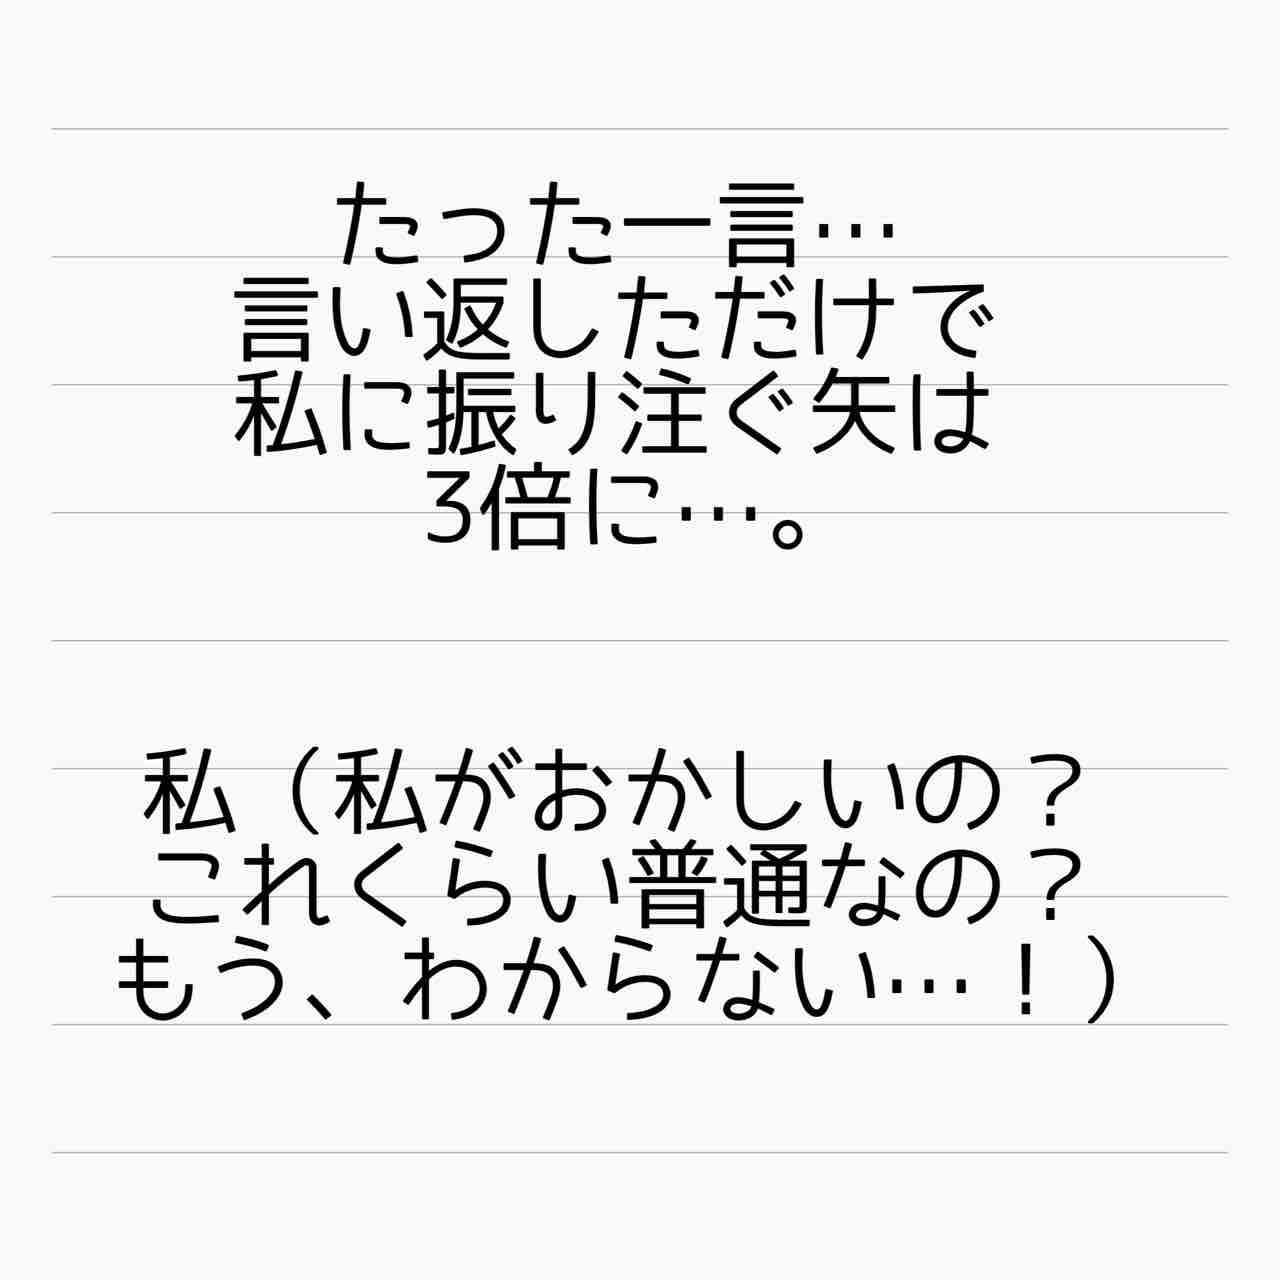 たった一言…
言い返しただけで
私に振り注ぐ矢は
3倍に…。
私（私がおかしいの？
これくらい普通なの？
もう、わからない…！）